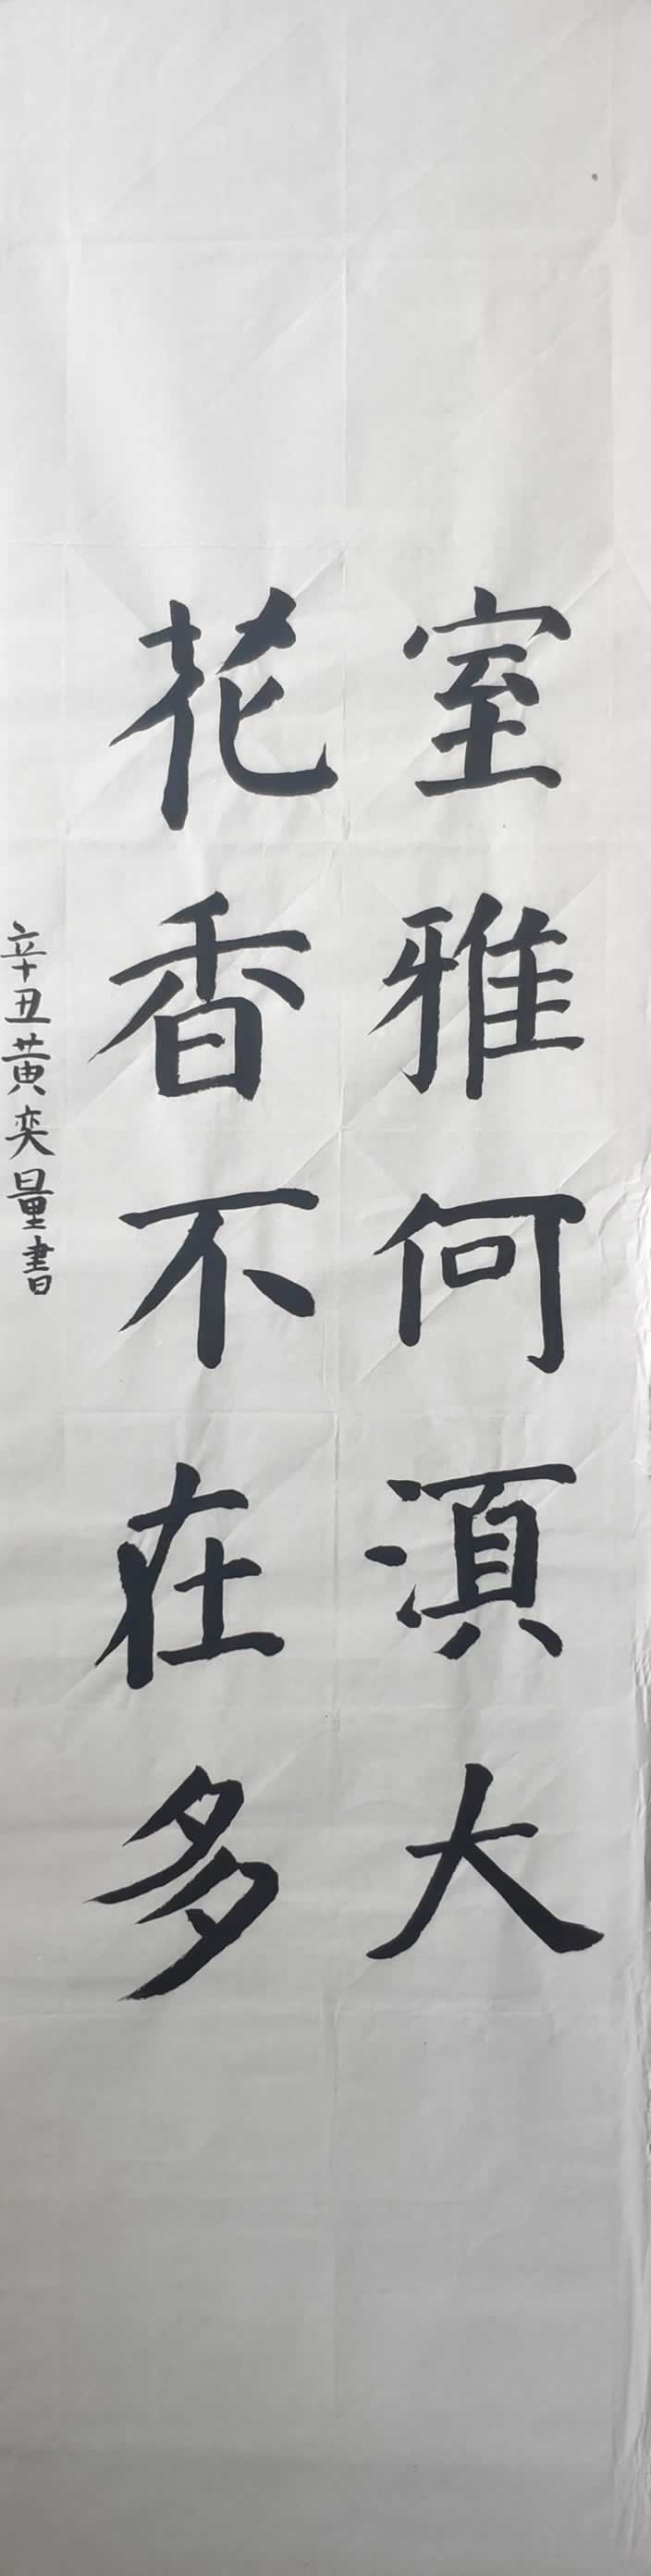 室雅何湏大
花香不在多
辛丑黄奕量書